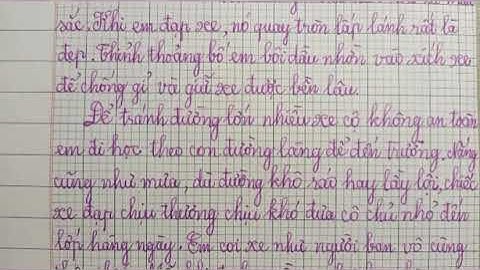 sắc. Khi em đạp xe, nó quay tròn lấp lánh rất là
đẹp. Thỉnh thoảng bố em bôi dầu nhờn vào xích xe
để chống gỉ và giữ xe được bền lâu.
Để tránh đường lớn nhiều xe cộ không an toàn
em đi học theo con đường làng để đến trường. Nắng
cũng như mưa, dù đường khô ráo hay lầy lội, chiếc
xe đạp chịu thương chịu khó đưa cô chủ nhỏ đến
lớp hằng ngày. Em coi xe như người bạn vô cùng